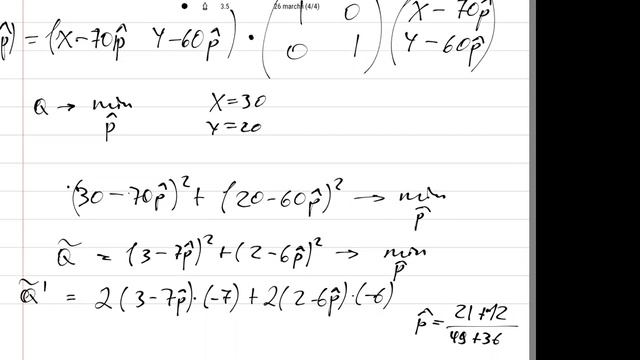 3.5 26 march (4/4)
p̂) = (X − 70p̂ Y − 60p̂) · (1 0 0 1) (X − 70p̂ Y − 60p̂)
Q → min p̂ X = 30
Y = 20
(30 − 70p̂)² + (20 − 60p̂)² → min p̂
Q̃ = (3 − 7p̂)² + (2 − 6p̂)² → min p̂
Q̃' = 2(3 − 7p̂)·(−7) + 2(2 − 6p̂)·(−6)
p̂ = 21 + 12 / 49 + 36